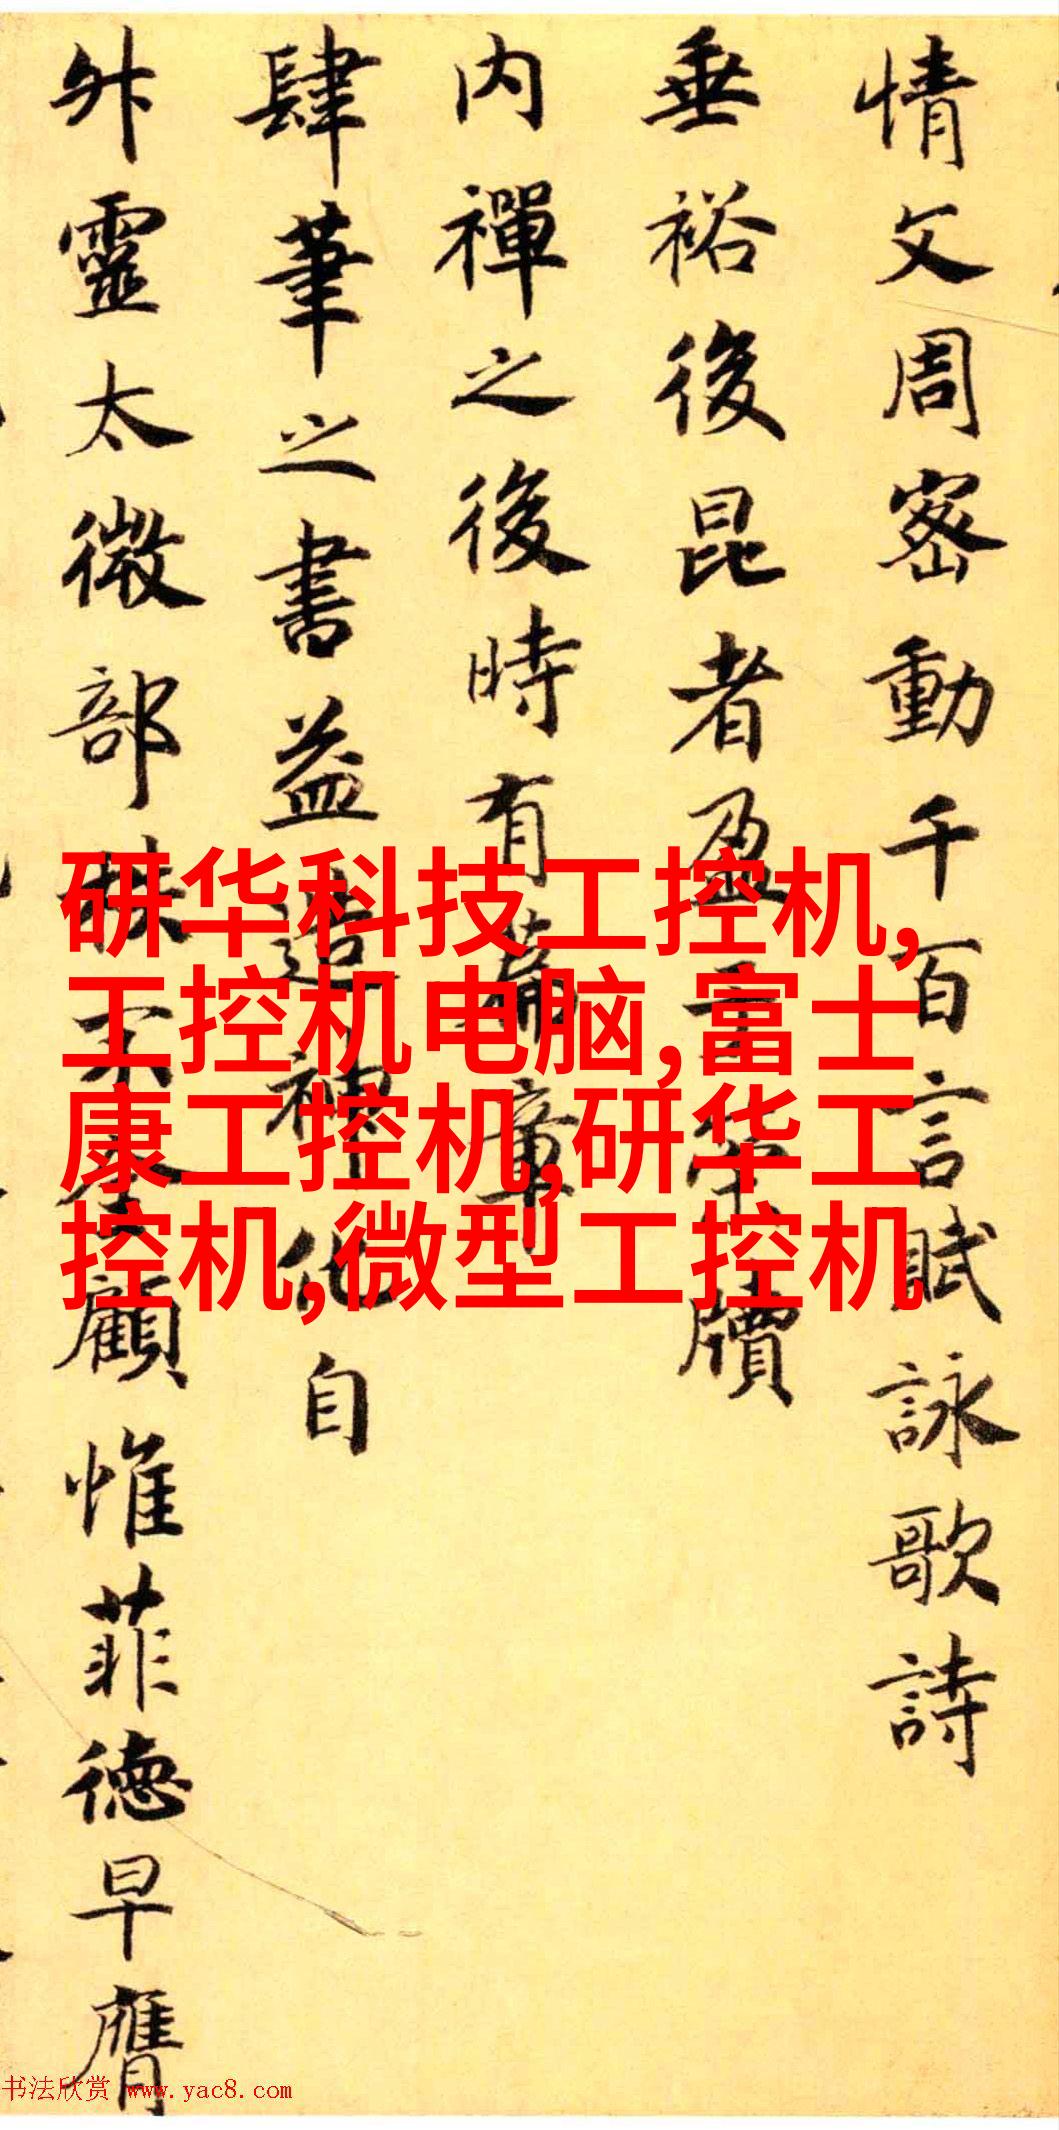 情文周密動千百言賦詠歌詩
垂裕後昆者盈牘
内禪之後時有篇章
肆筆之書益造神化自
靈太微部顧惟菲德早膺
研华科技工控机,
工控机电脑,富士
康工控机,研华工
控机,微型工控机
书法欣赏 www.yac8.com